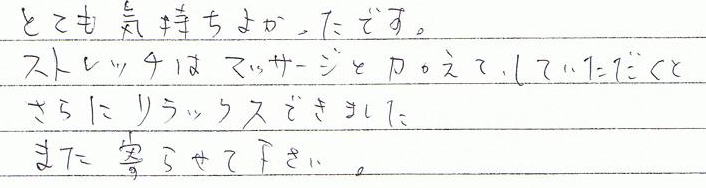 とても気持ちよかったです。
ストレッチはマッサージとカロえて、していただくと
さらにリラックスできました
また寄らせて下さい。